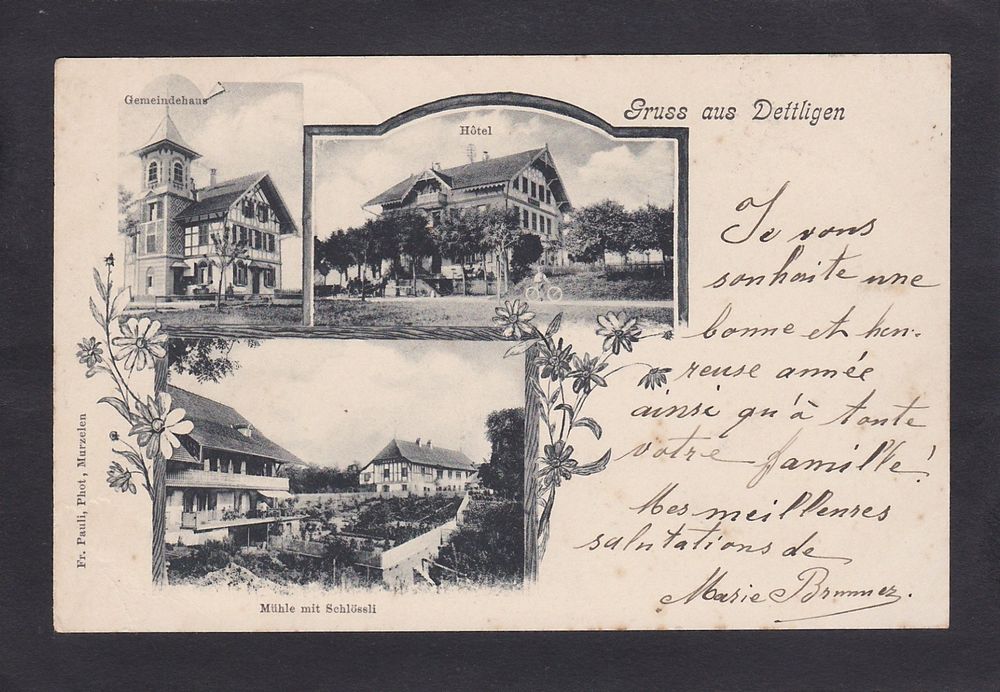 Gemeindehaus
Hôtel
Gruss aus Dettligen
Je vous
souhaite une
bonne et heu-
reuse année
ainsi qu'à toute
votre famille!
Mes meilleures
salutations de
Marie Brunner.
Fr. Pauli, Phot, Murzelen
Mühle mit Schlössli